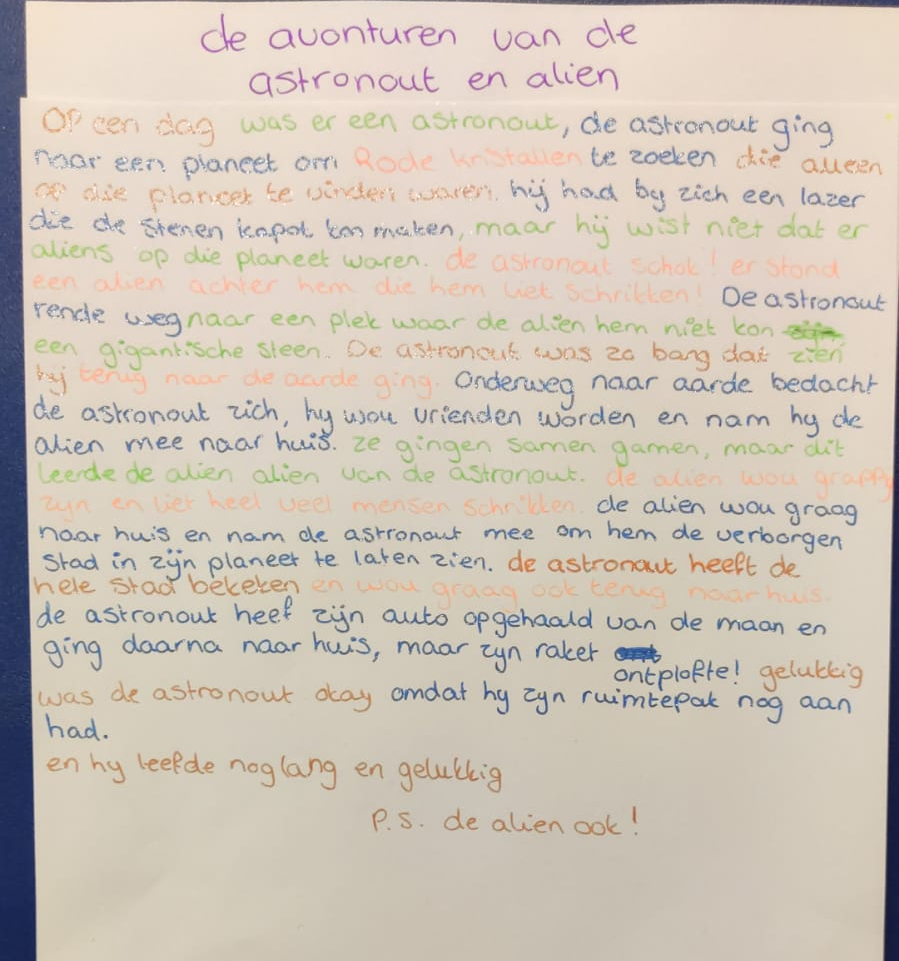 de avonturen van de
astronout en alien
Op een dag was er een astronout, de astronout ging
naar een planeet om Rode kristallen te zoeken die alleen
op die planeet te vinden waren. hij had by zich een lazer
die de stenen kapot kon maken, maar hij wist niet dat er
aliens op die planeet waren. de astronout schok! er stond
een alien achter hem die hem liet schrikken! De astronout
rende weg naar een plek waar de alien hem niet kon
een gigantische steen. De astronout was zo bang dat zien
hij terug naar de aarde ging. Onderweg naar aarde bedacht
de astronout zich, hy wou vrienden worden en nam hy de
alien mee naar huis. ze gingen samen gamen, maar dit
leerde de alien alien van de astronout. de alien wou grappig
zyn en liet heel veel mensen schrikken. de alien wou graag
naar huis en nam de astronout mee om hem de verborgen
stad in zijn planeet te laten zien. de astronaut heeft de
hele stad bekeken en wou graag ook terug naar huis.
de astronout heef zijn auto opgehaald van de maan en
ging daarna naar huis, maar zyn raket
ontplofte! gelukkig
was de astronout okay omdat hy zyn ruimtepak nog aan
had.
en hy leefde nog lang en gelukkig
P.S. de alien ook!